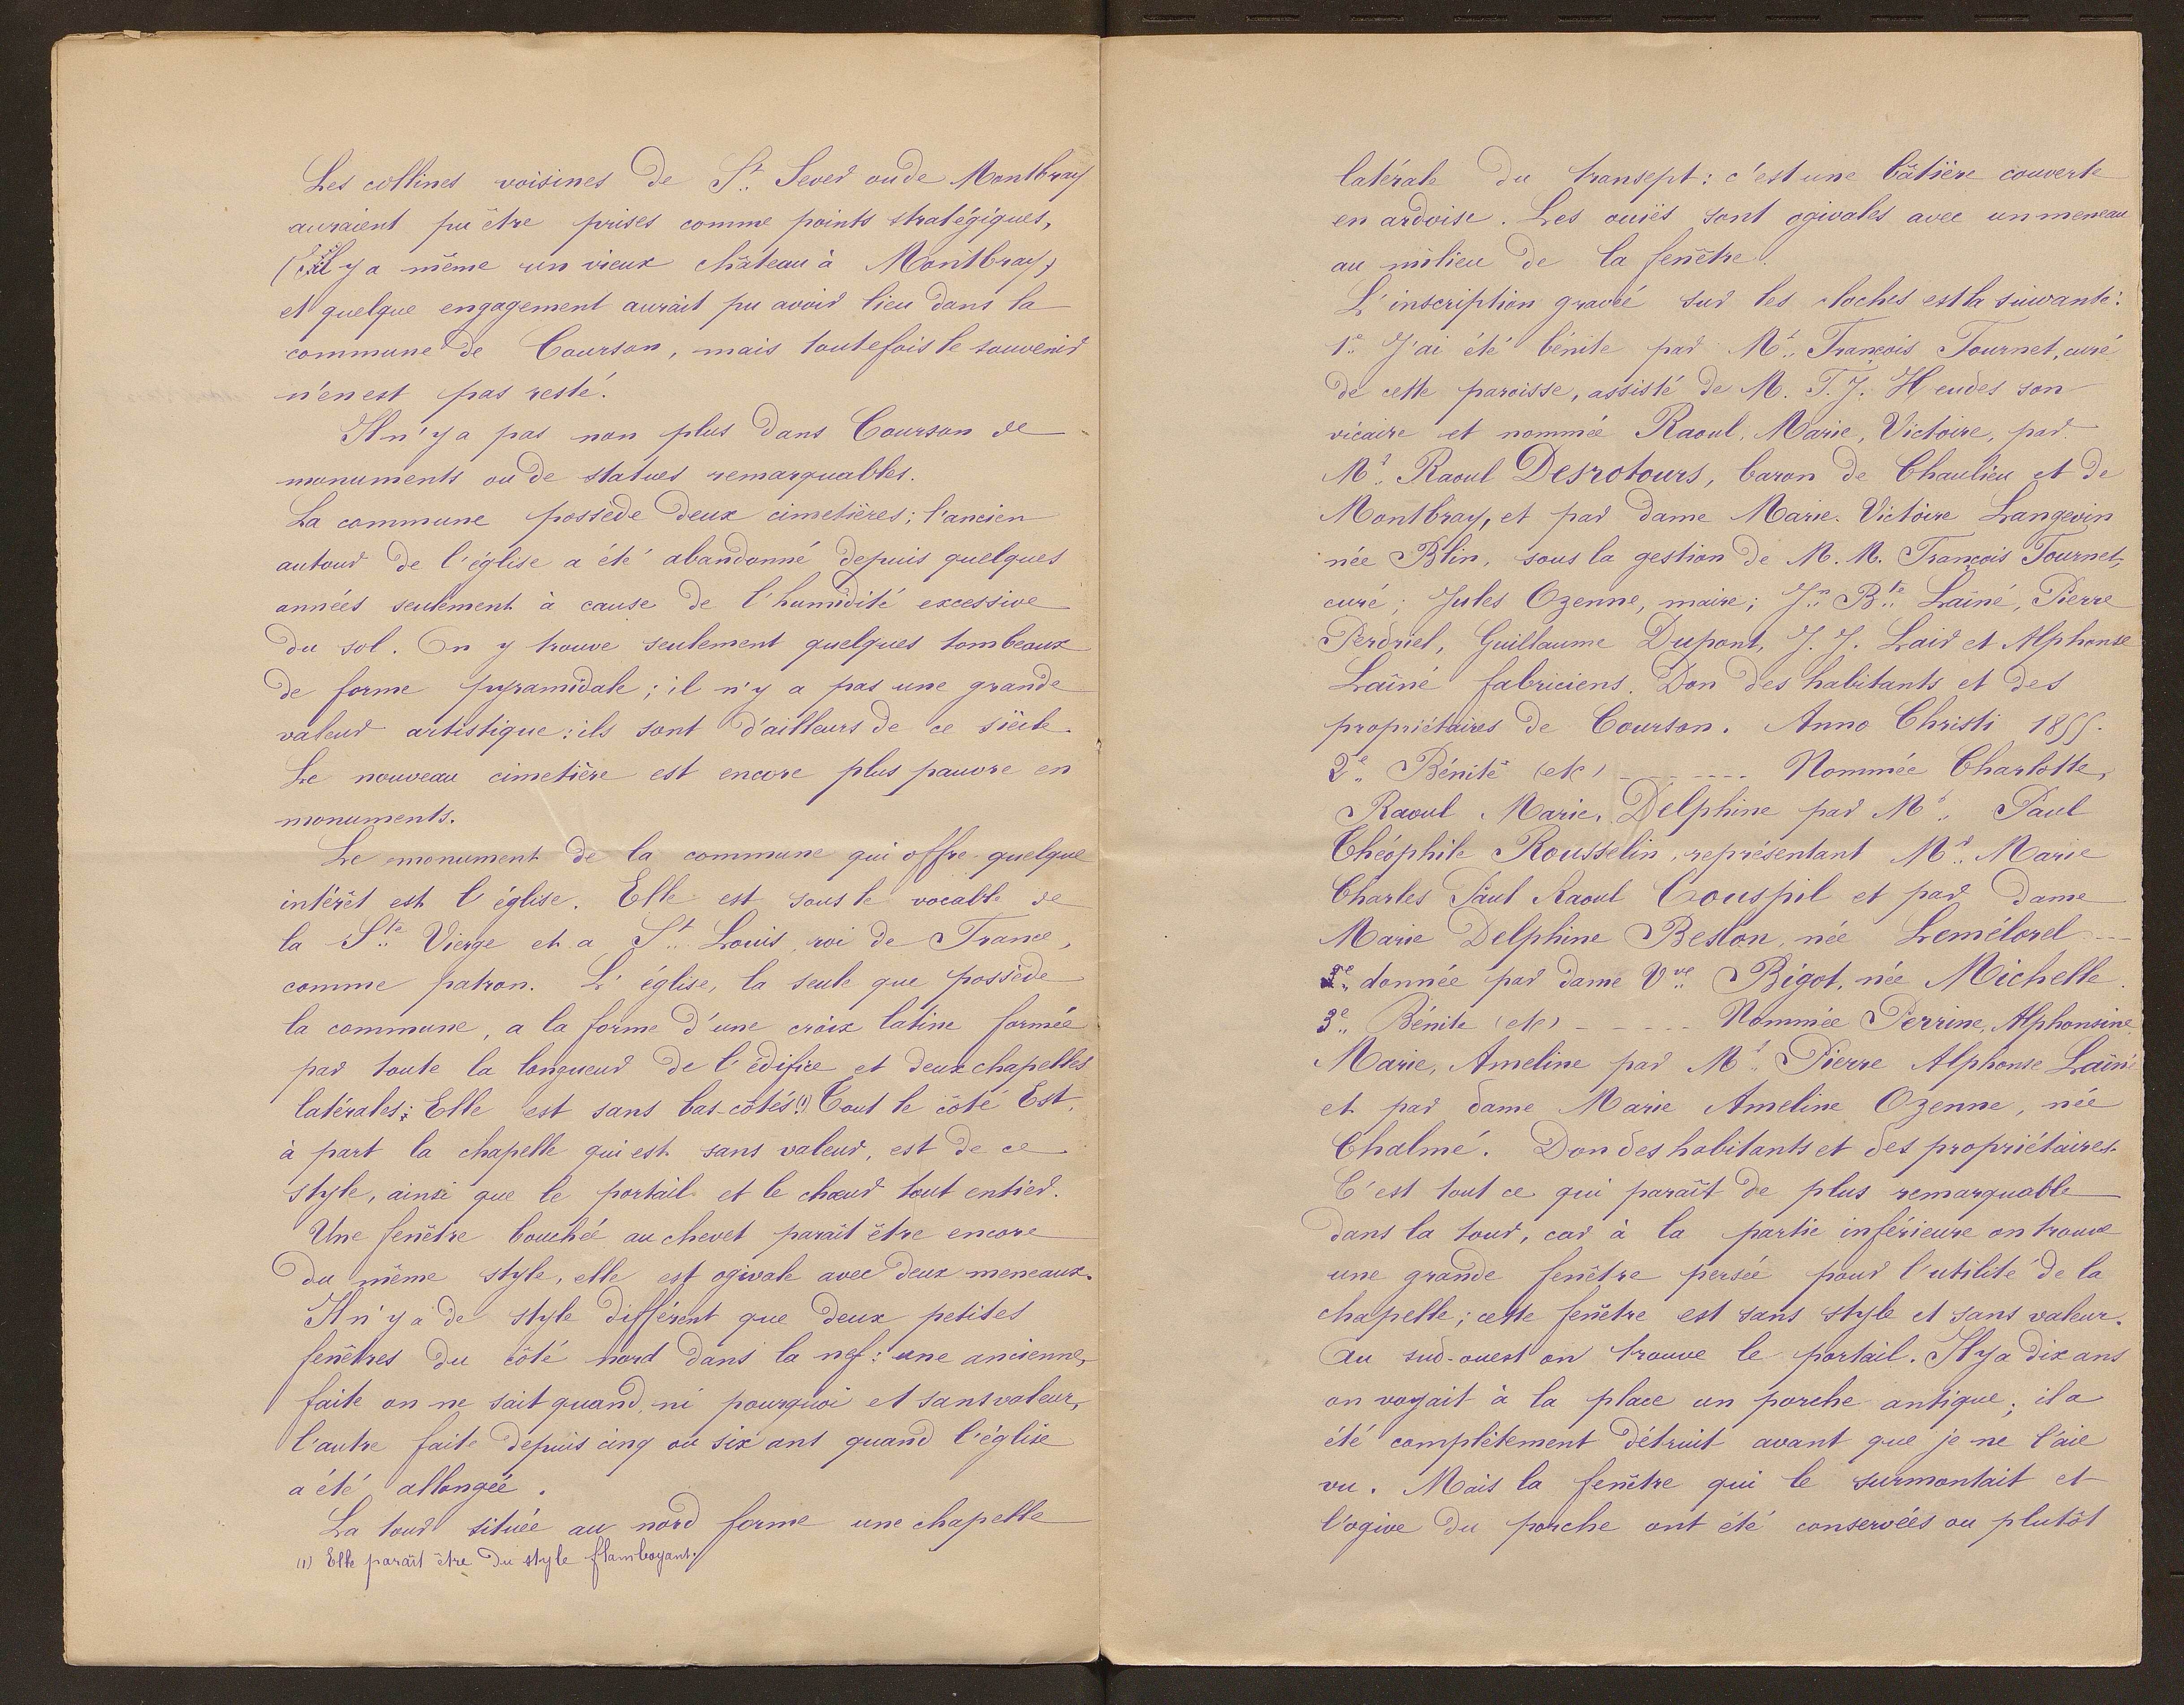 Les collines voisines de St Sever ou de Montbray
auraient pu être prises comme points stratégiques,
(il y a même un vieux château à Montbray)
et quelque engagement aurait pu avoir lieu dans la
commune de Courson, mais toutefois le souvenir
n'en est pas resté.
Il n'y a pas non plus dans Courson de
monuments ou de statues remarquables.
La commune possède deux cimetières; l'ancien
autour de l'église a été abandonné depuis quelques
années seulement à cause de l'humidité excessive
du sol. On y trouve seulement quelques tombeaux
de forme pyramidale; il n'y a pas une grande
valeur artistique: ils sont d'ailleurs de ce siècle.
Le nouveau cimetière est encore plus pauvre en
monuments.
Le monument de la commune qui offre quelque
intérêt est l'église. Elle est sous le vocable de
la Ste Vierge et a St Louis, roi de France,
comme patron. L'église, la seule que possède
la commune, a la forme d'une croix latine formée
par toute la longueur de l'édifice et deux chapelles
latérales; Elle est sans bas-côtés (1). Tout le côté Est,
à part la chapelle qui est sans valeur, est de ce
style, ainsi que le portail et le chœur tout entier.
Une fenêtre bouchée au chevet paraît être encore
du même style, elle est ogivale avec deux meneaux.
Il n'y a de style différent que deux petites
fenêtres du côté nord dans la nef: une ancienne,
faite on ne sait quand, ni pourquoi et sans valeur,
l'autre faite depuis cinq ou six ans quand l'église
a été allongée.
La tour située au nord forme une chapelle
(1) Elle paraît être du style flamboyant.
latérale du transept: c'est une bâtière couverte
en ardoise. Les ouïes sont ogivales avec un meneau
au milieu de la fenêtre.
L'inscription gravée sur les cloches est la suivante:
1e J'ai été bénite par Mr François Tournet, curé
de cette paroisse, assisté de M. F. J. Heudes son
vicaire et nommée Raoul, Marie, Victoire, par
Mr Raoul Desrotours, baron de Chaulieu et de
Montbray, et par dame Marie-Victoire Langevin
née Blin, sous la gestion de M. M. François Tournet,
curé; Jules Ozenne, maire; Jn Bte Laîné, Pierre
Perdriel, Guillaume Dupont, J. J. Lair et Alphonse
Laîné fabriciens. Don des habitants et des
propriétaires de Courson. Anno Christi 1855.
2e Bénite (etc) ------- Nommée Charlotte,
Raoul Marie, Delphine par Mr Paul
Théophile Rousselin, représentant Mr Marie
Charles Paul Raoul Couspil et par dame
Marie Delphine Beslon, née Lemélorel ---
2e donnée par dame Vve Bigot, née Michelle.
3e Bénite (etc) ----- Nommée Perrine, Alphonsine
Marie, Ameline par Mr Pierre Alphonse Laîné
et par dame Marie Ameline Ozenne, née
Chalmé. Don des habitants et des propriétaires.
C'est tout ce qui paraît de plus remarquable
dans la tour, car à la partie inférieure on trouve
une grande fenêtre persée pour l'utilité de la
chapelle; cette fenêtre est sans style et sans valeur.
Au sud-ouest on trouve le portail. Il y a dix ans
on voyait à la place un porche antique; il a
été complètement détruit avant que je ne l'aie
vu. Mais la fenêtre qui le surmontait et
l'ogive du porche ont été conservées ou plutôt